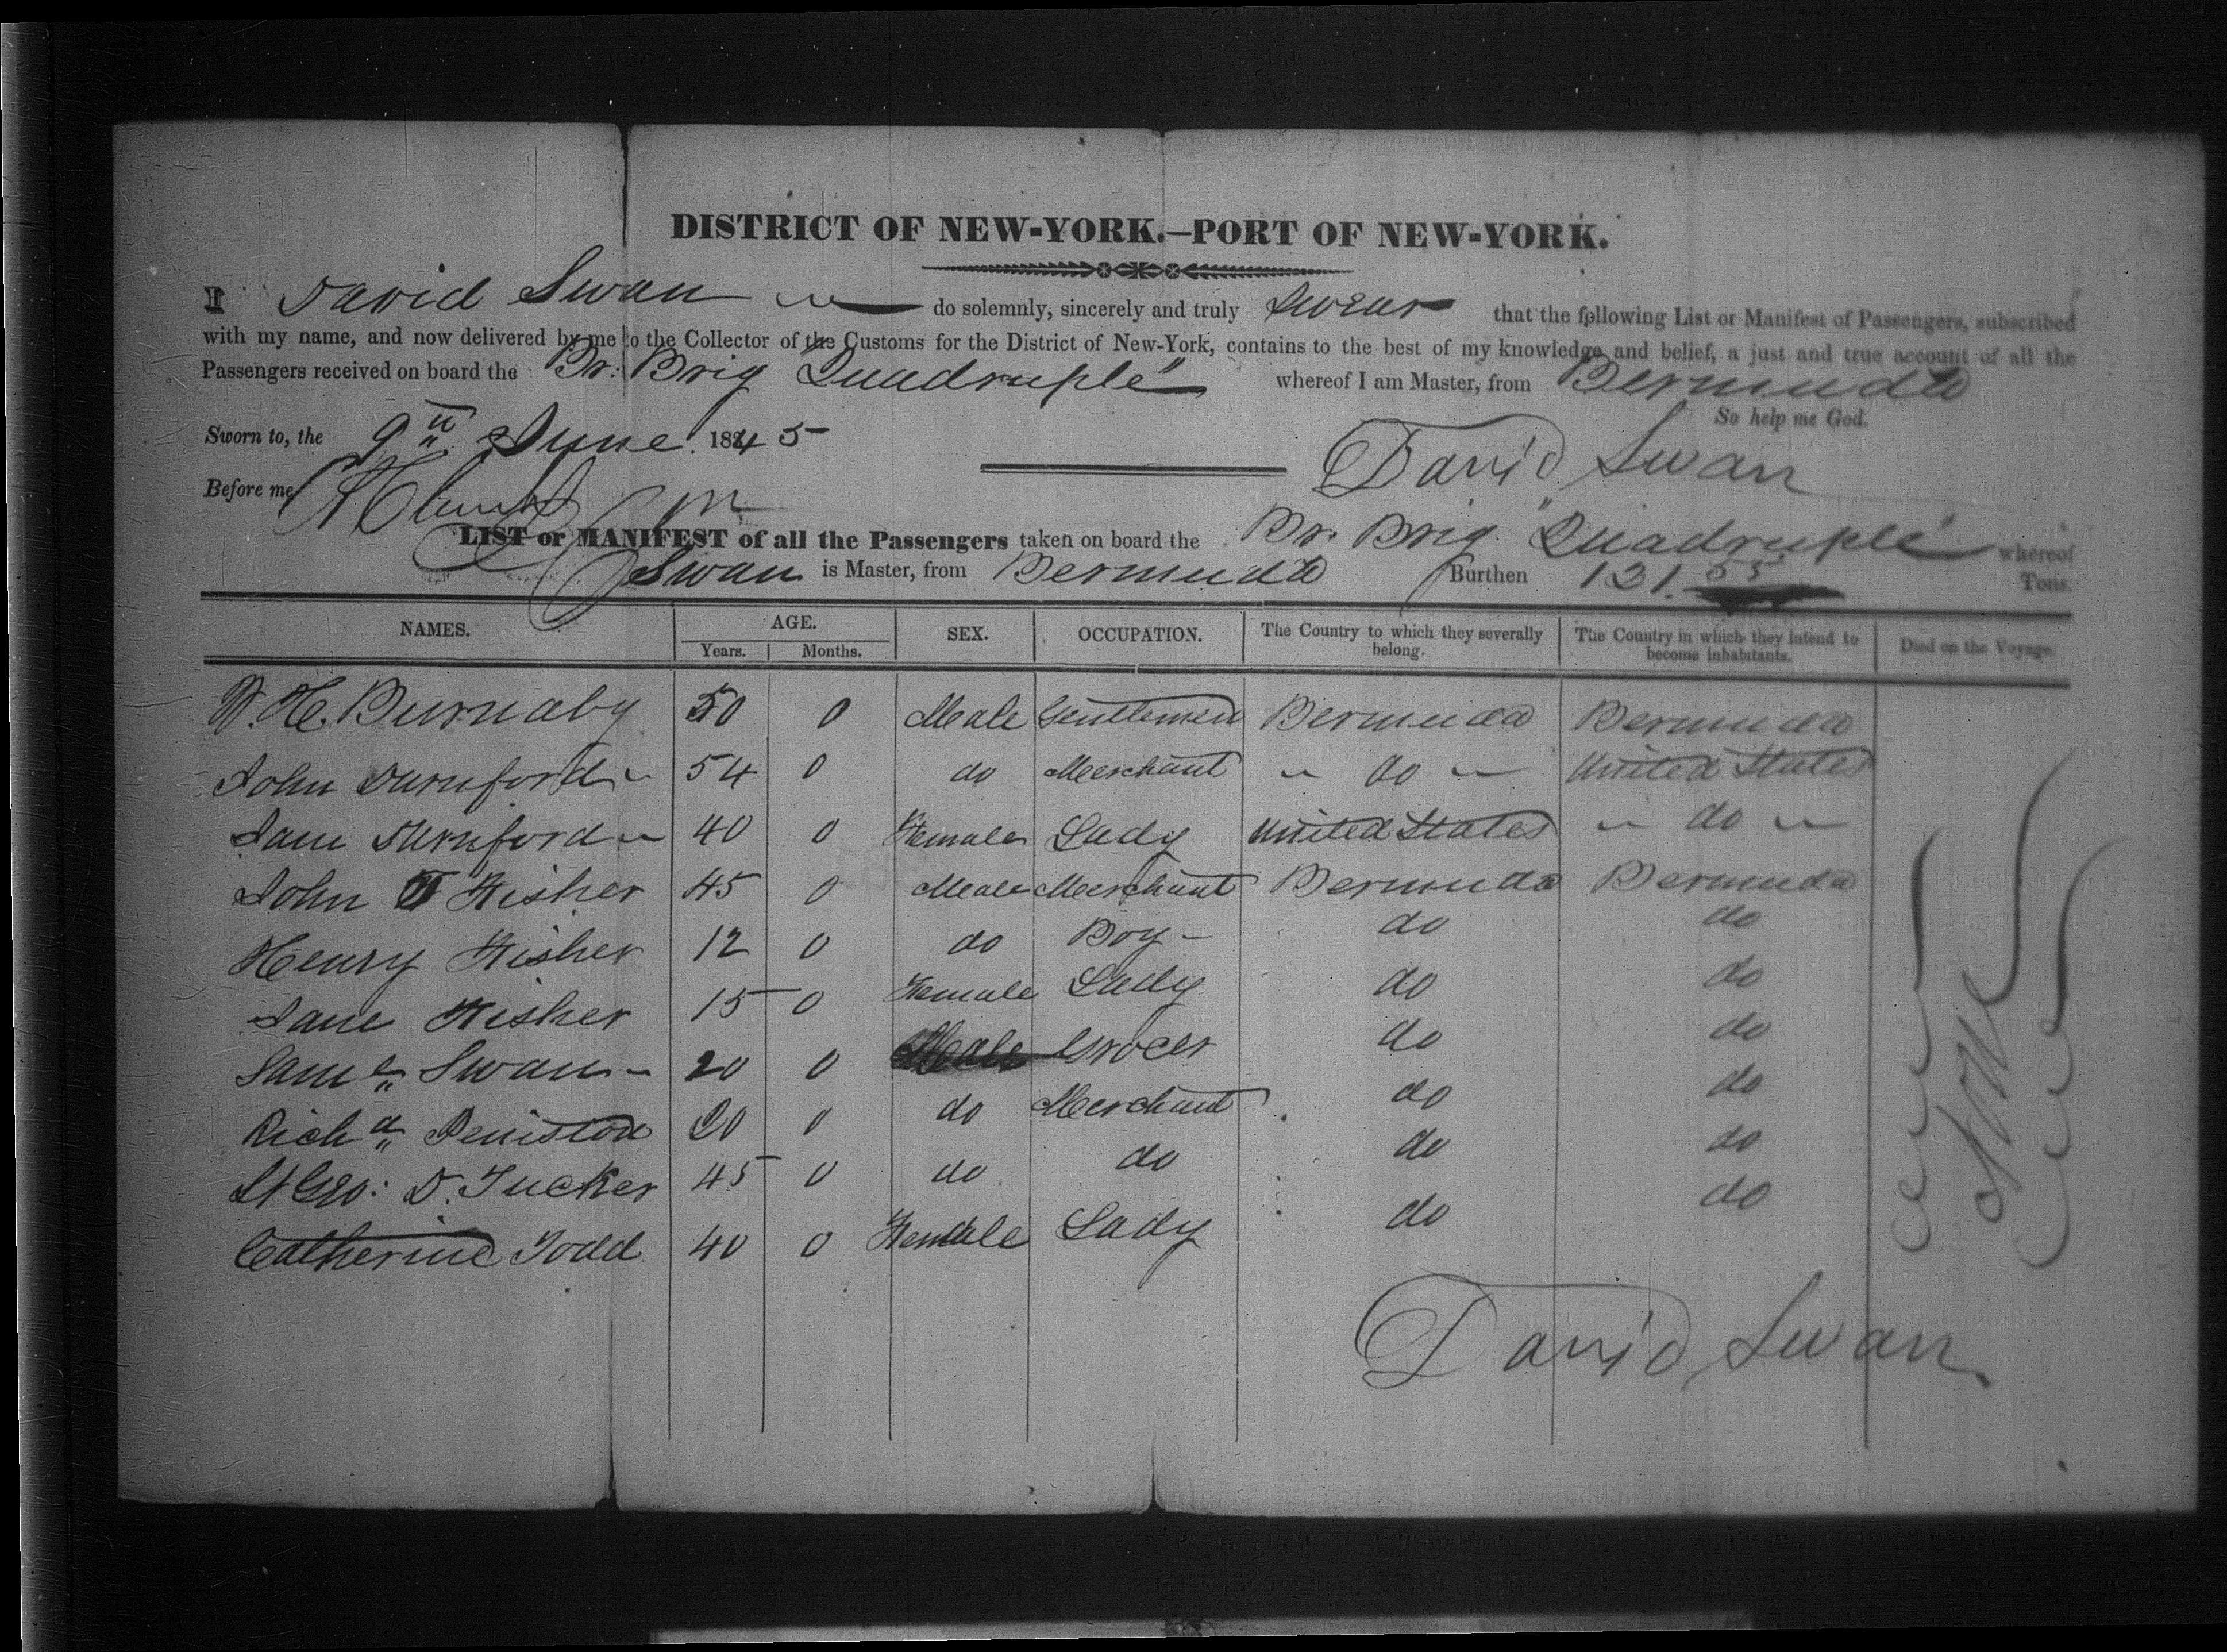 DISTRICT OF NEW-YORK.—PORT OF NEW-YORK.
I David Swan do solemnly, sincerely and truly Swear that the following List or Manifest of Passengers, subscribed
with my name, and now delivered by me to the Collector of the Customs for the District of New-York, contains to the best of my knowledge and belief, a just and true account of all the
Passengers received on board the Br. Brig "Quadruple" whereof I am Master, from Bermuda
So help me God.
Sworn to, the 9th June 1845
David Swan
Before me
LIST or MANIFEST of all the Passengers taken on board the Br. Brig "Quadruple" whereof
Swan is Master, from Bermuda Burthen 131. 55 Tons.
NAMES. AGE. SEX. OCCUPATION. The Country to which they severally belong. The Country in which they intend to become inhabitants. Died on the Voyage.
Years. Months.
W. H. Burnaby 50 0 Male Gentleman Bermuda Bermuda
John Durnford 54 0 do Merchant do United States
Jane Durnford 40 0 Female Lady United States do
John T Fisher 45 0 Male Merchant Bermuda Bermuda
Henry Fisher 12 0 do Boy do do
Jane Fisher 15 0 Female Lady do do
Saml. Swan 20 0 Male Grocer do do
Richd. Peniston 20 0 do Merchant do do
St Geo: D. Tucker 45 0 do do do do
Catherine Todd 40 0 Female Lady do do
None
David Swan